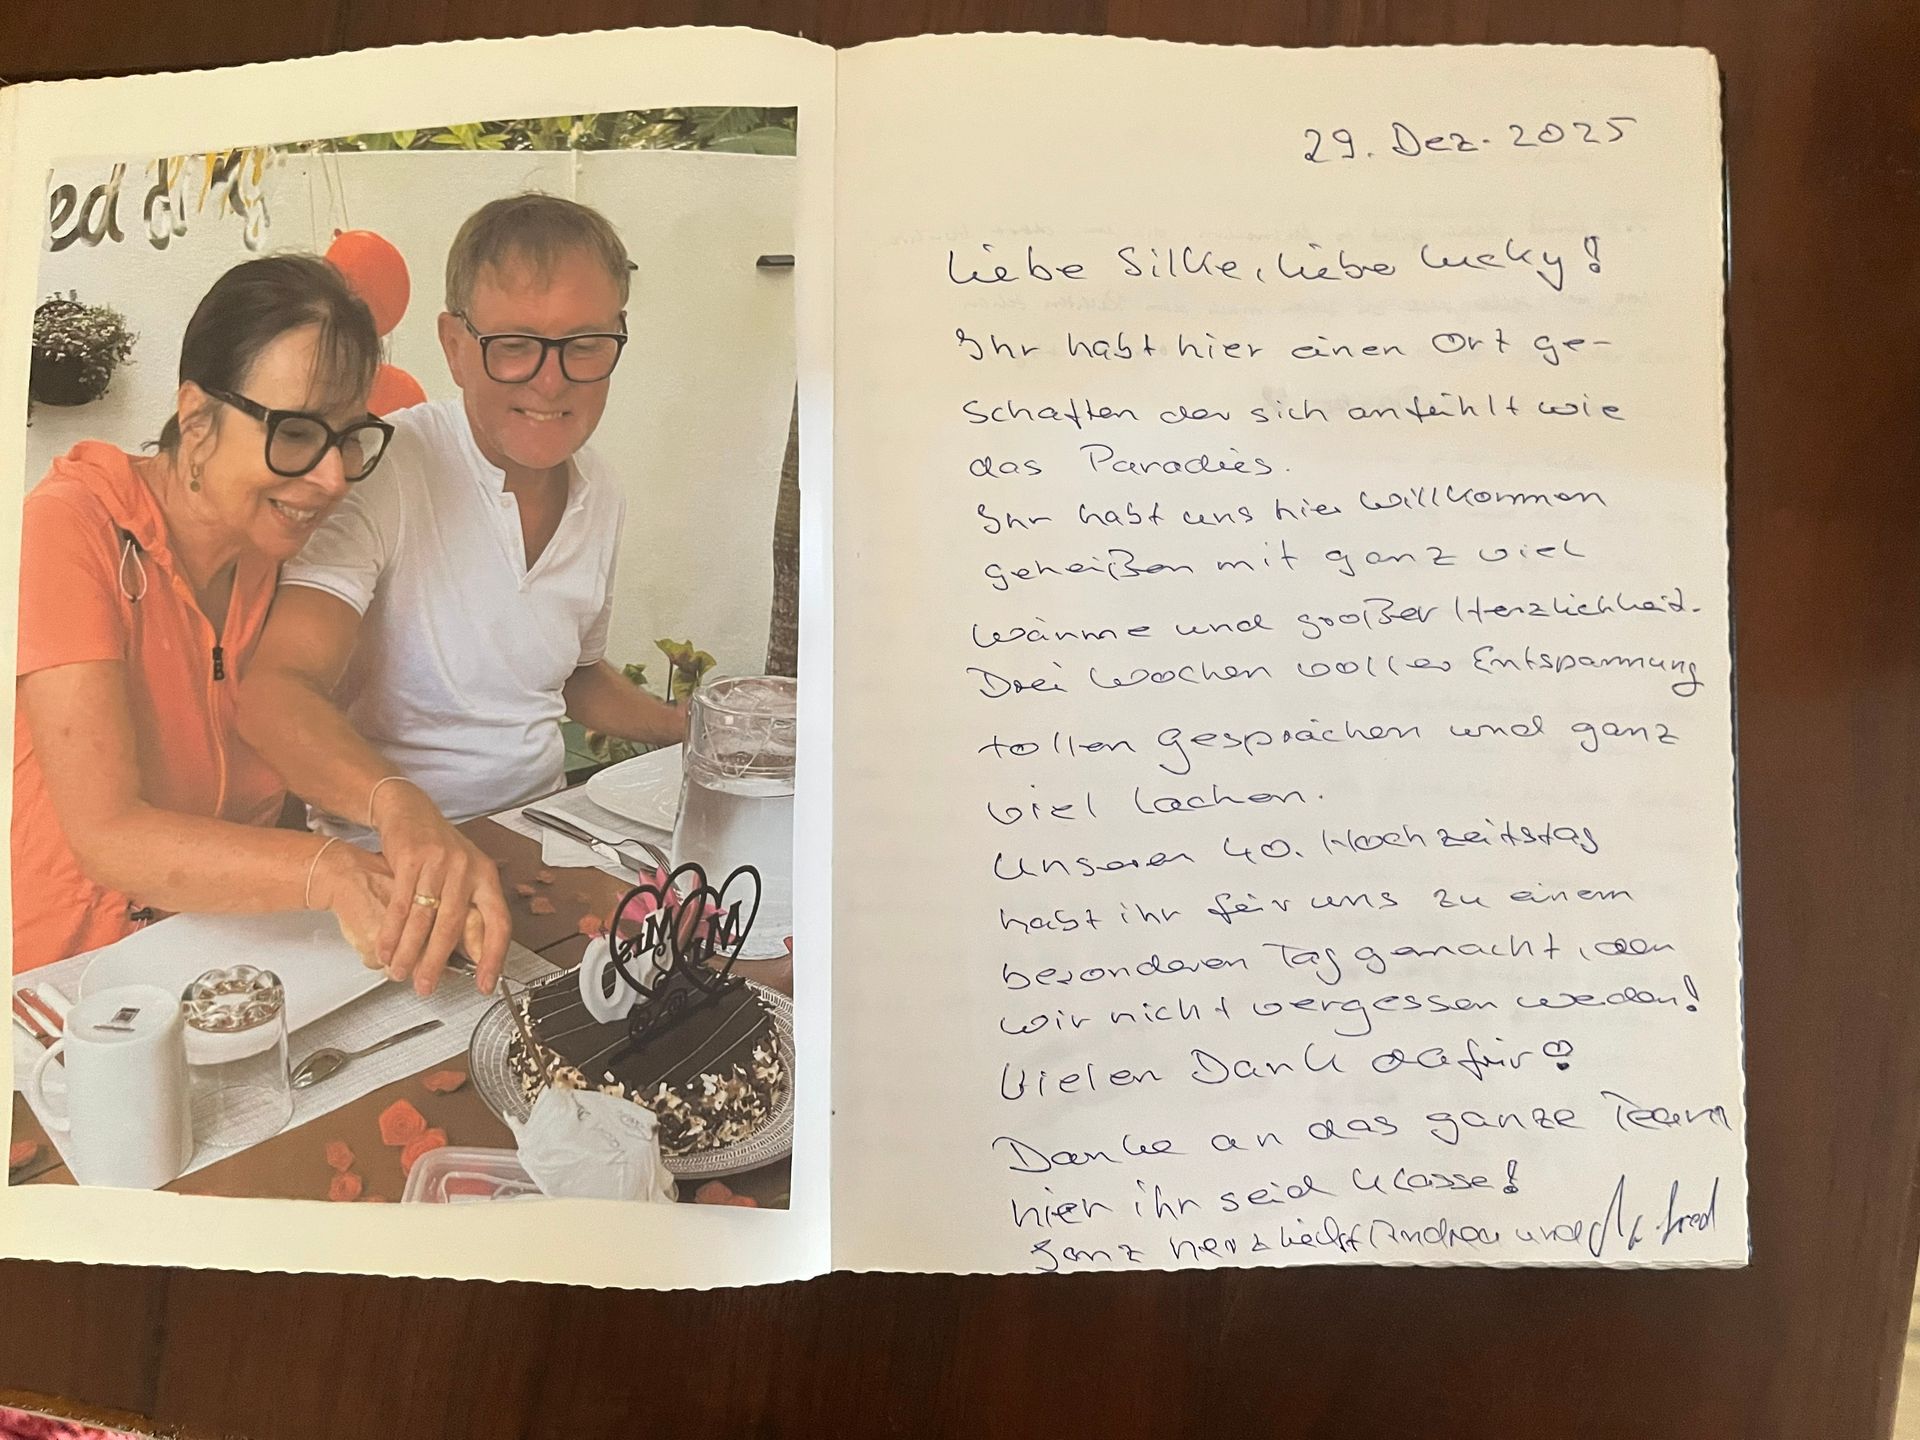 ed din
MR
MRS
29. Dez. 2025
Liebe Silke, liebe Lucky!
Ihr habt hier einen Ort ge-
schaffen der sich anfühlt wie
das Paradies.
Ihr habt uns hier Willkommen
geheißen mit ganz viel
Wärme und großer Herzlichkeit.
Drei Wochen voller Entspannung
tollen Gesprächen und ganz
viel Lachen.
Unseren 40. Hochzeitstag
habt ihr für uns zu einem
besonderen Tag gemacht, den
wir nicht vergessen werden!
Vielen Dank dafür
Danke an das ganze Team
hier ihr seid Klasse!
Ganz herzlichst Andrea und Manfred